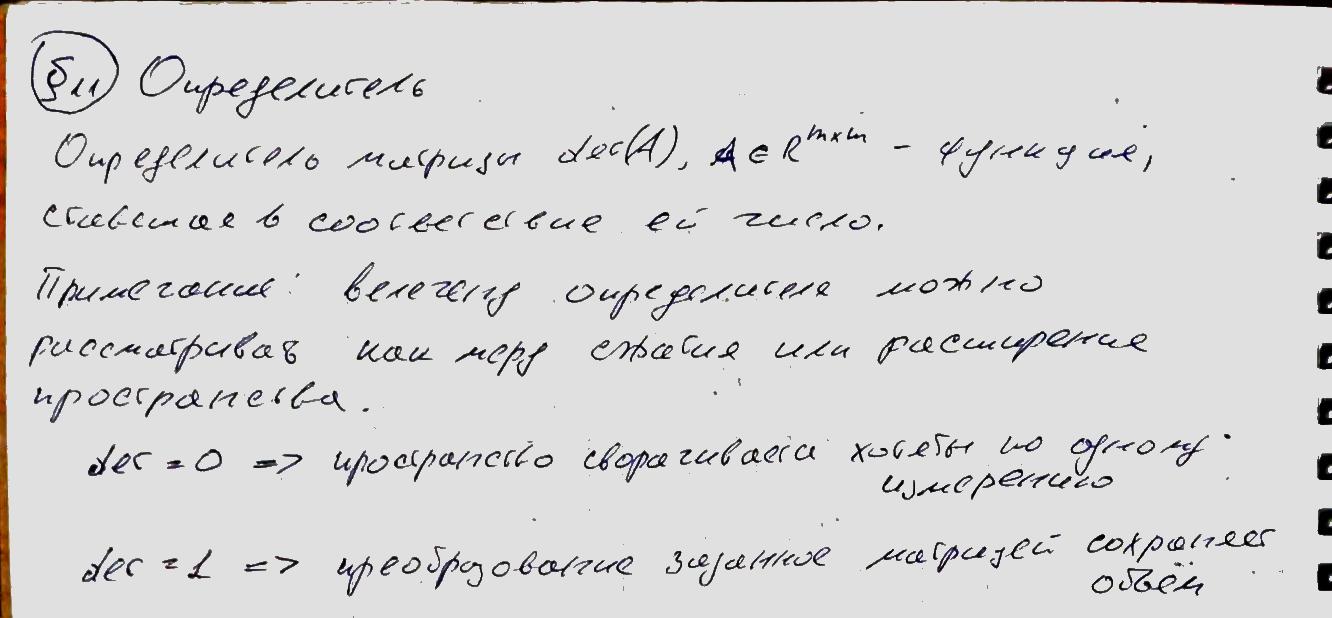 §11 Определитель
Определитель матрицы det(A), A ∈ R^{m×m} - функция,
ставящая в соответствие ей число.
Примечание: величину определителя можно
рассматривать как меру сжатия или расширения
пространства.
det = 0 => пространство сворачивается хотябы по одному
измерению
det = 1 => преобразование заданное матрицей сохраняет
объём